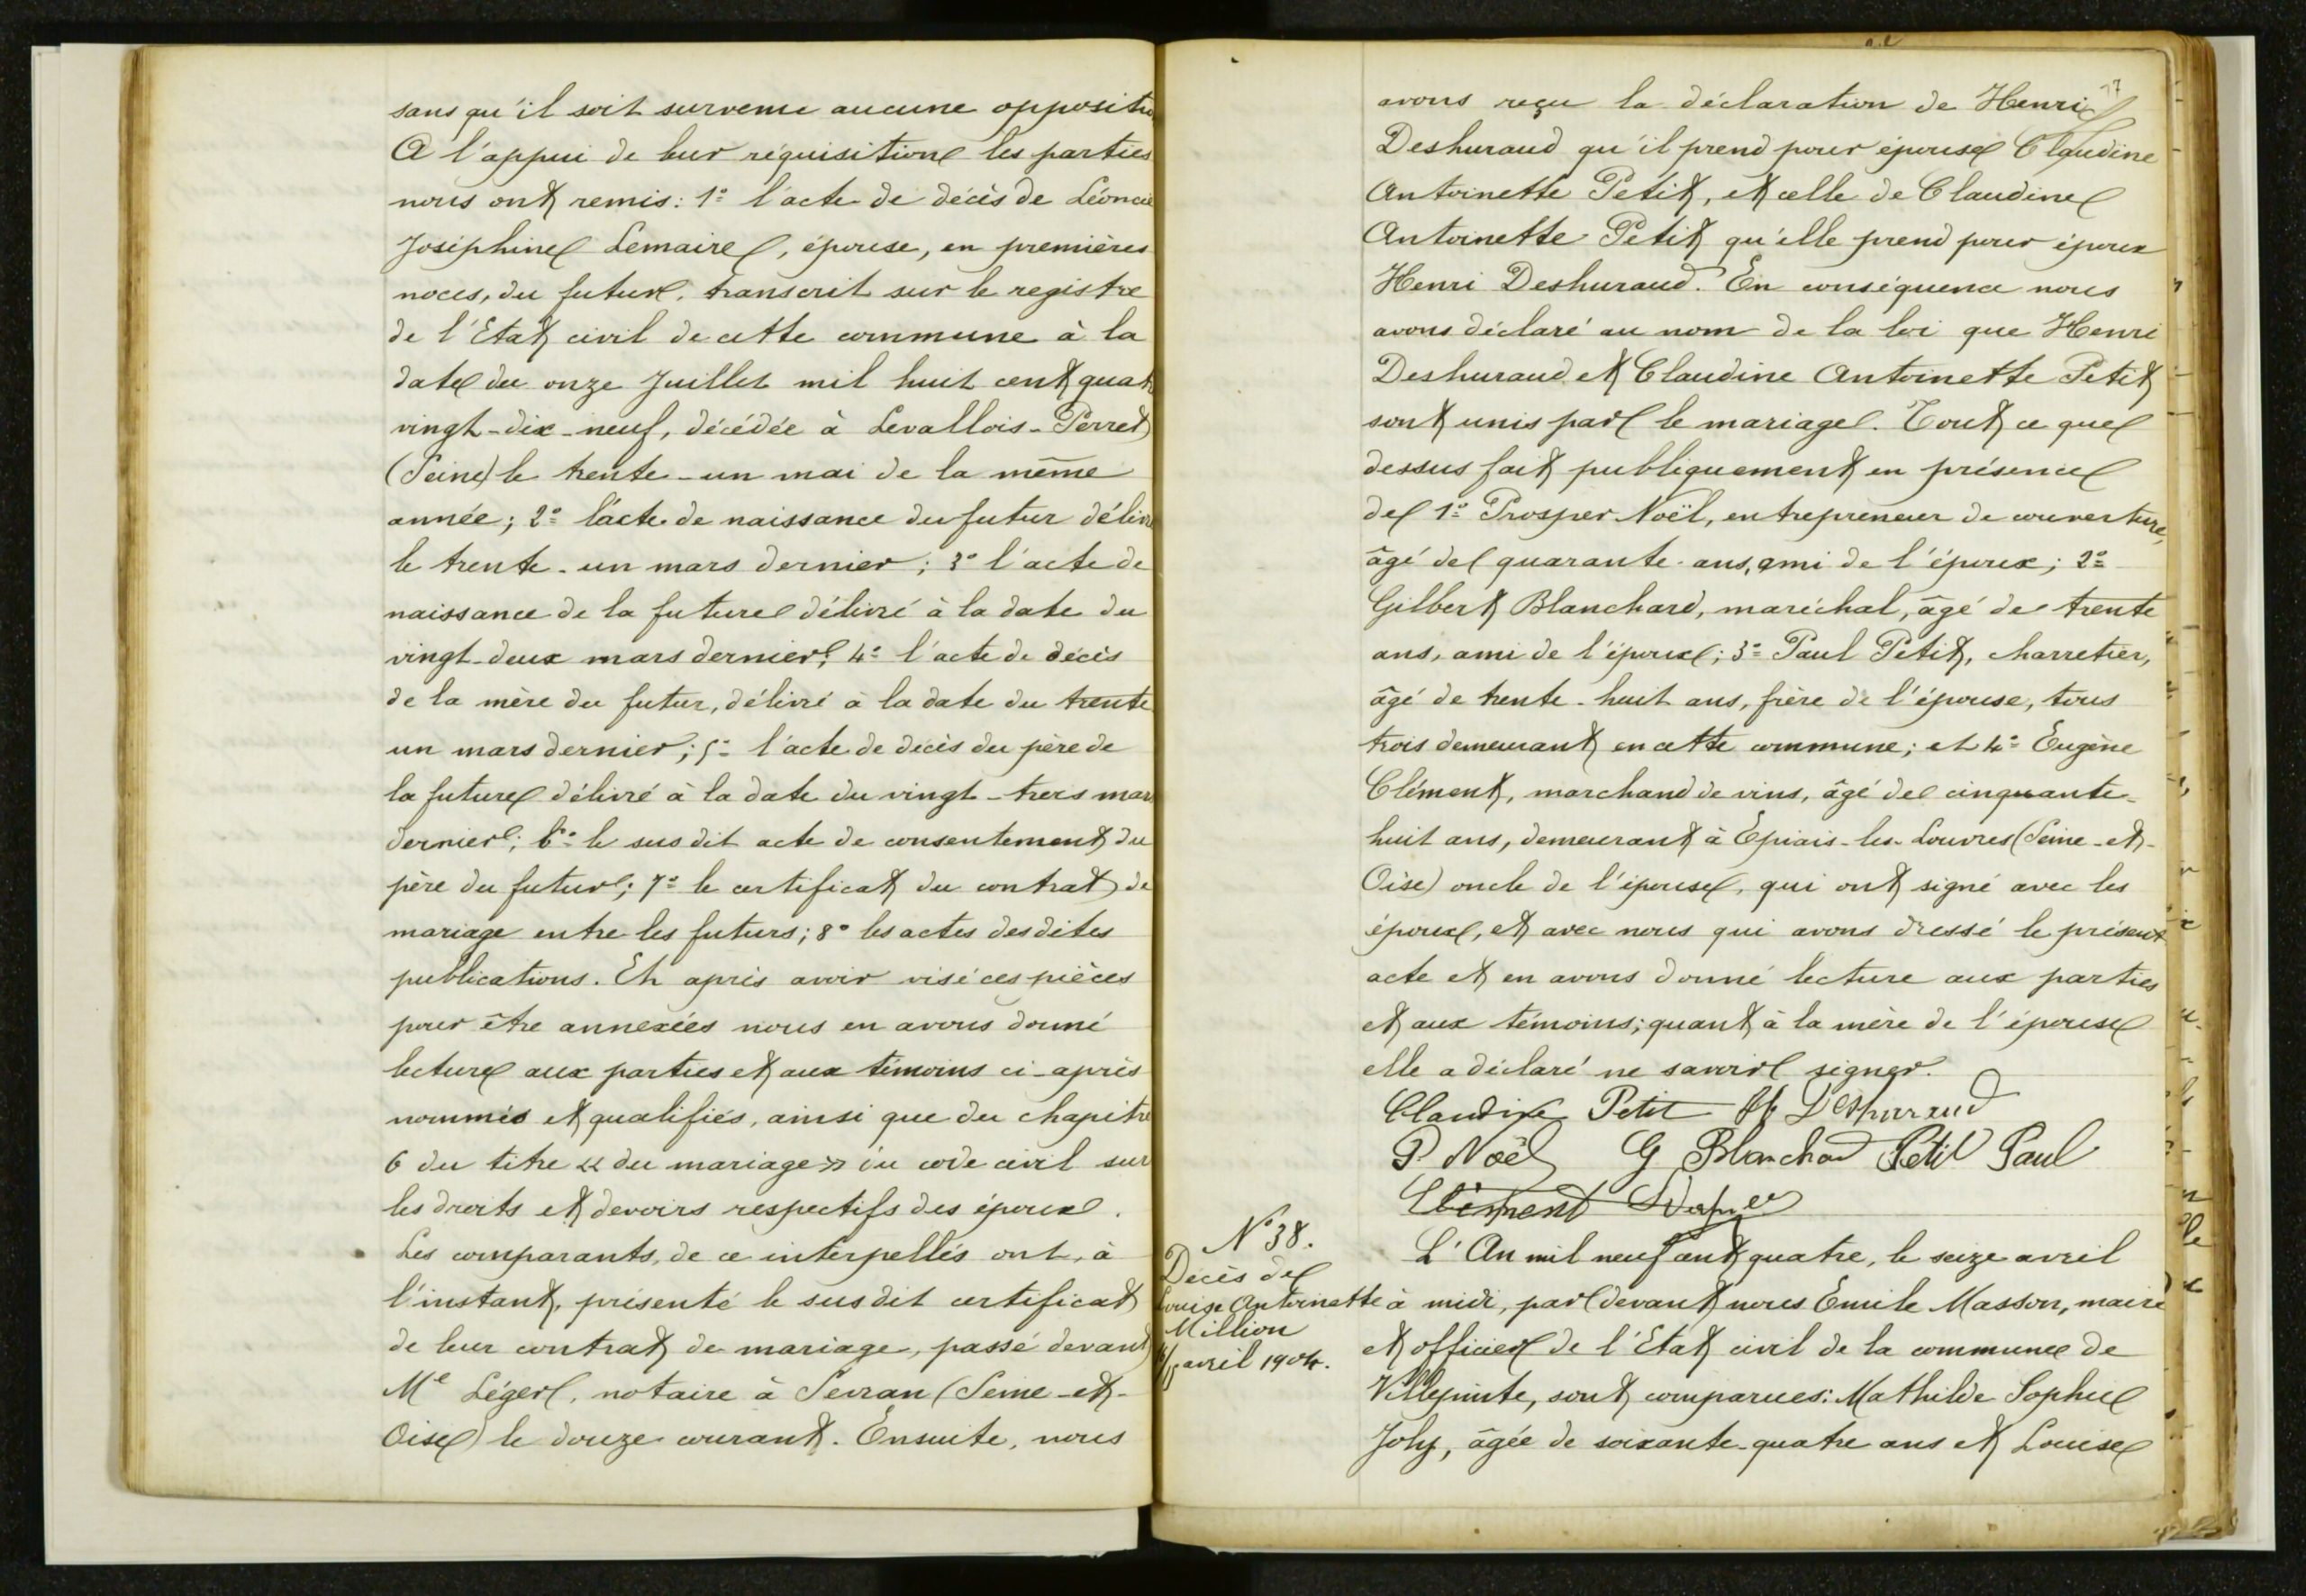 sans qu'il soit survenu aucune oppositio
A l'appui de leur réquisition les parties
nous ont remis : 1° l'acte de décès de Léoncie
Joséphine Lemaire, épouse, en premières
noces, du futur, transcrit sur le registre
de l'Etat civil de cette commune à la
date du onze Juillet mil huit cent quat
vingt-dix-neuf, décédée à Levallois-Perret
(Seine) le trente-un mai de la même
année ; 2° l'acte de naissance du futur déliv
le trente-un mars dernier ; 3° l'acte de
naissance de la future délivré à la date du
vingt-deux mars dernier ; 4° l'acte de décès
de la mère du futur, délivré à la date du trente
un mars dernier ; 5° l'acte de décès du père de
la future délivré à la date du vingt-trois mars
dernier ; 6° le susdit acte de consentement du
père du futur ; 7° le certificat du contrat de
mariage entre les futurs ; 8° les actes desdites
publications. Et après avoir visé ces pièces
pour être annexées nous en avons donné
lecture aux parties et aux témoins ci-après
nommés et qualifiés, ainsi que du chapitre
6 du titre « du mariage » du code civil sur
les droits et devoirs respectifs des époux.
Les comparants, de ce interpellés ont, à
l'instant, présenté le susdit certificat
de leur contrat de mariage, passé devant
Me Léger, notaire à Sevran (Seine-et-
Oise) le douze courant. Ensuite, nous
17
avons reçu la déclaration de Henri
Deshuraud qu'il prend pour épouse Claudine
Antoinette Petit, et celle de Claudine
Antoinette Petit qu'elle prend pour époux
Henri Deshuraud. En conséquence nous
avons déclaré au nom de la loi que Henri
Deshuraud et Claudine Antoinette Petit
sont unis par le mariage. Tout ce que
dessus fait publiquement en présence
de 1° Prosper Noël, entrepreneur de couverture,
âgé de quarante ans, ami de l'époux ; 2°
Gilbert Blanchard, maréchal, âgé de trente
ans, ami de l'époux ; 3° Paul Petit, charretier,
âgé de trente-huit ans, frère de l'épouse, tous
trois demeurant en cette commune ; et 4° Eugène
Clément, marchand de vins, âgé de cinquante-
huit ans, demeurant à Epiais-les-Louvres (Seine-et-
Oise) oncle de l'épouse, qui ont signé avec les
époux, et avec nous qui avons dressé le présent
acte et en avons donné lecture aux parties
et aux témoins ; quant à la mère de l'épouse
elle a déclaré ne savoir signer.
Claudine Petit H Deshuraud
P. Noël G Blanchard Petit Paul
Clément
N° 38.
Décès de
Louise Antoinette
Million
avril 1904.
L'An mil neuf cent quatre, le seize avril
à midi, par devant nous Emile Masson, maire
et officier de l'Etat civil de la commune de
Villepinte, sont comparues : Mathilde Sophie
Joly, âgée de soixante-quatre ans et Louise